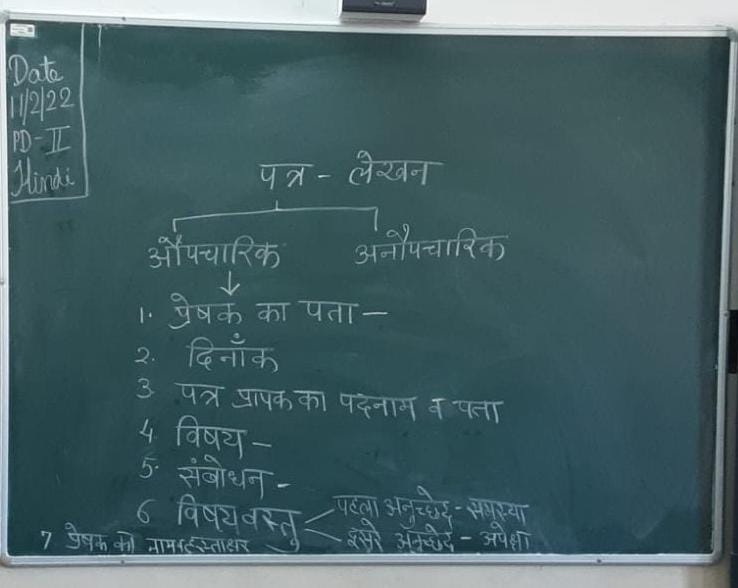 Date
11/2/22
PD-II
Hindi
पत्र - लेखन
औपचारिक अनौपचारिक
1. प्रेषक का पता -
2. दिनाँक
3 पत्र प्रापक का पदनाम व पता
4 विषय -
5. संबोधन -
6 विषयवस्तु पहला अनुच्छेद - समस्या
दूसरे अनुच्छेद - अपेक्षा
7 प्रेषक का नाम हस्ताक्षर